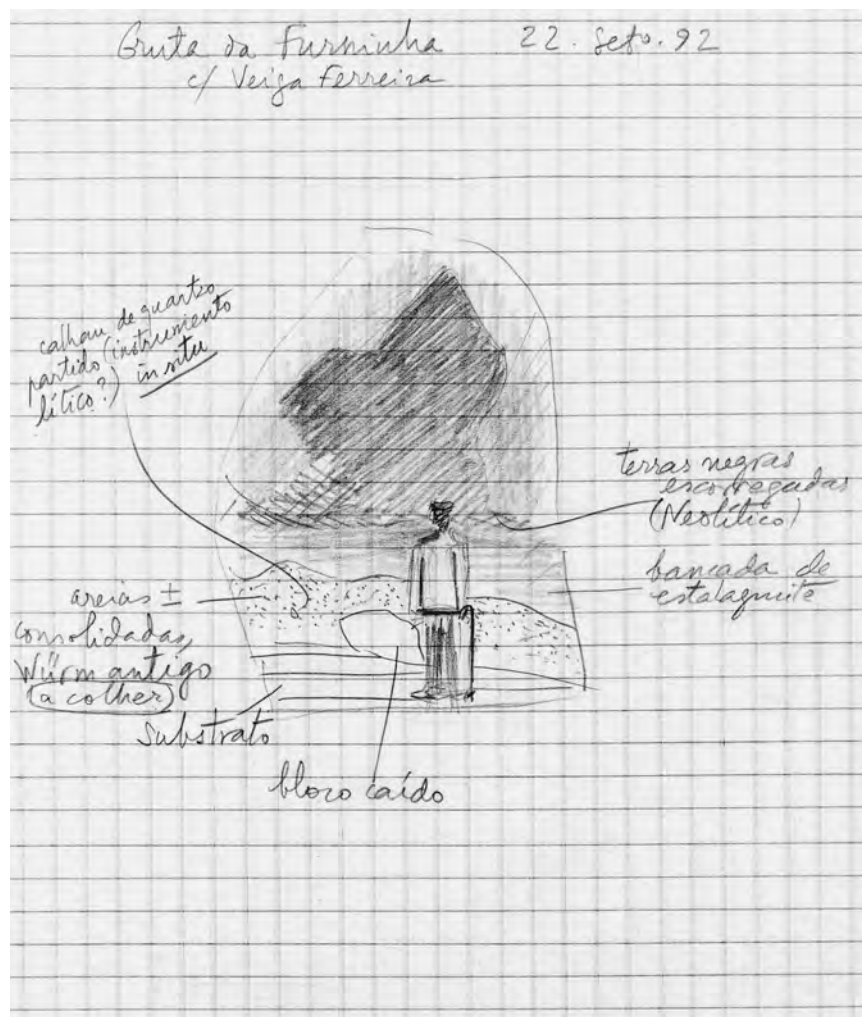 Gruta da Furninha 22. Seto. 92
c/ Veiga Ferreira
calhau de quartzo
partido (instrumento
lítico?) in situ
terras negras
escorregadas
(Neolítico)
bancada de
estalagmite
areias ±
consolidadas,
Würm antigo
(a colher)
substrato
bloco caído